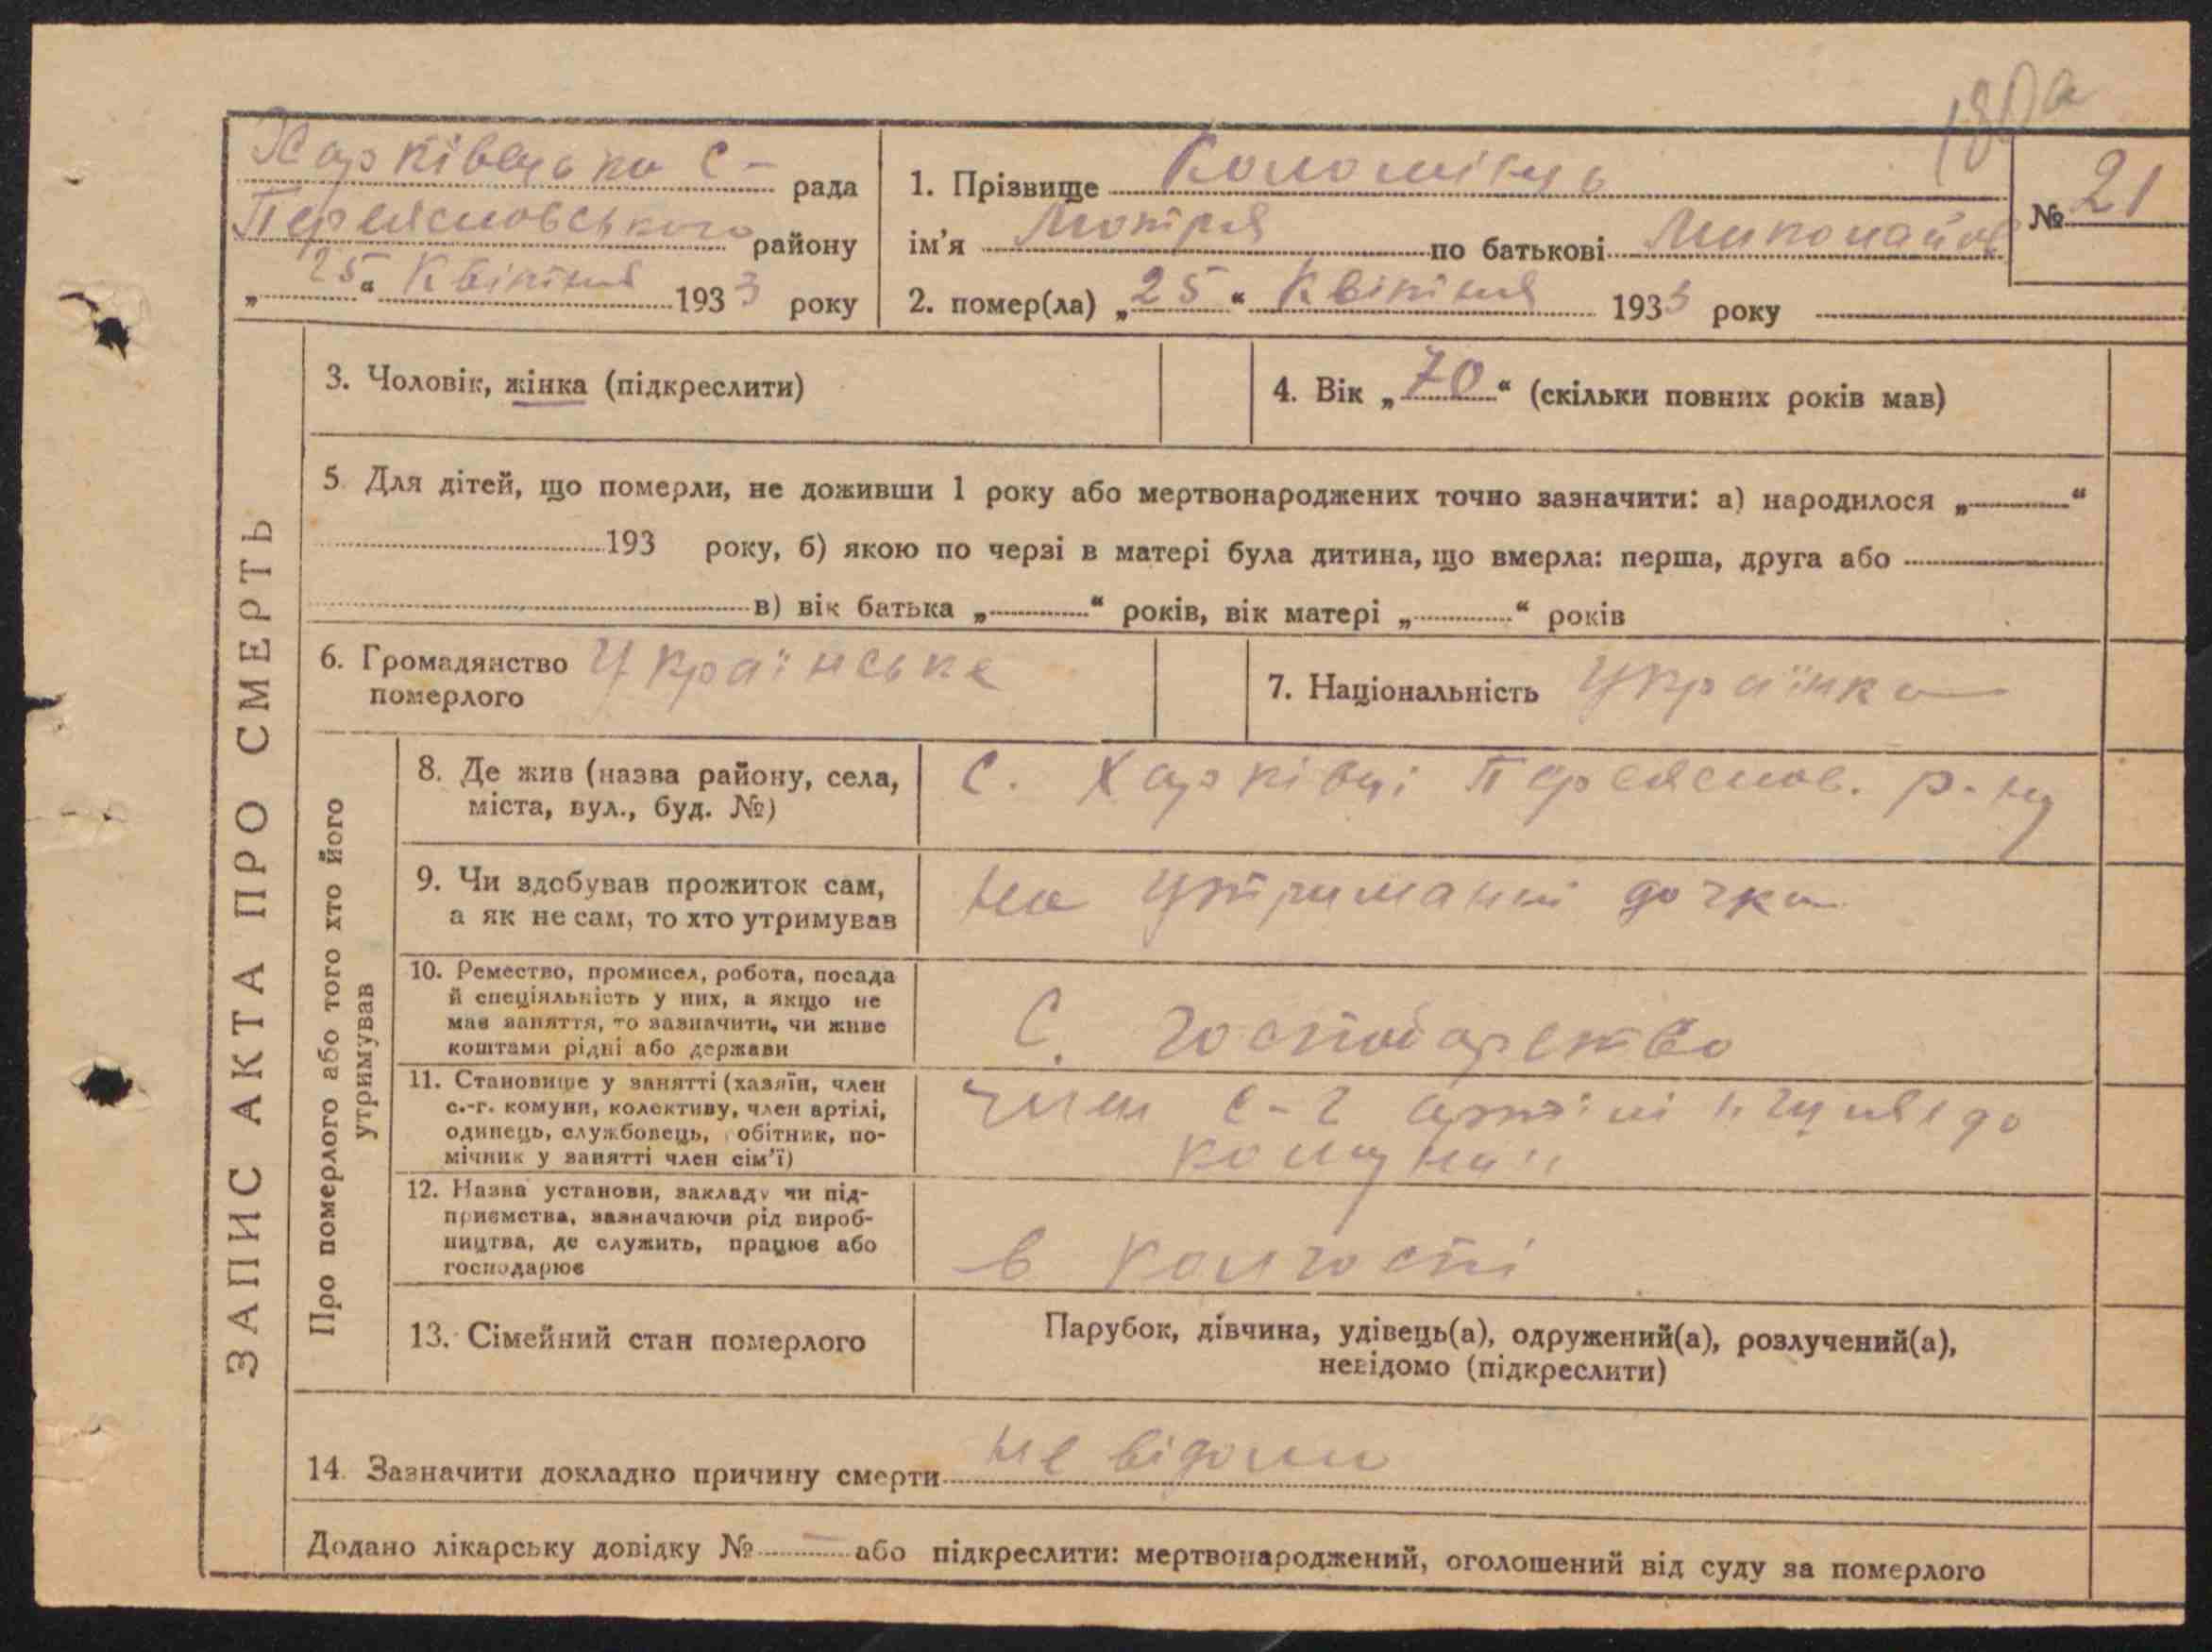 180а
Харківецька С- рада
Переяславського району
„25“ Квітня 1933 року
1. Прізвище Коломієць
ім'я Мотря по батькові Миколаїв
2. помер(ла) „25“ Квітня 1933 року
№ 21
ЗАПИС АКТА ПРО СМЕРТЬ
3. Чоловік, жінка (підкреслити)
4. Вік „70“ (скільки повних років мав)
5 Для дітей, що померли, не доживши 1 року або мертвонароджених точно зазначити: а) народилося „ “
193 року, б) якою по черзі в матері була дитина, що вмерла: перша, друга або
в) вік батька „ “ років, вік матері „ “ років
6. Громадянство Українське
померлого
7. Національність Українка
Про померлого або того хто його
утримував
8. Де жив (назва району, села,
міста, вул., буд. №)
С. Харківці Переяслов. р-ну
9. Чи здобував прожиток сам,
а як не сам, то хто утримував
на утриманні дочка
10. Ремество, промисел, робота, посада
й спеціяльність у них, а якщо не
мав заняття, то зазначити, чи живе
коштами рідні або держави
С. господарство
11. Становище у занятті (хазяїн, член
с.-г. комуни, колективу, член артілі,
одинець, службовець, робітник, по-
мічник у занятті член сім'ї)
член с-г артілі „Шлях до
комуни“
12. Назва установи, закладу чи під-
приємства, зазначаючи рід вироб-
ництва, де служить, працює або
господарює
в колгоспі
13. Сімейний стан померлого
Парубок, дівчина, удівець(а), одружений(а), розлучений(а),
невідомо (підкреслити)
14. Зазначити докладно причину смерти не відома
Додано лікарську довідку № — або підкреслити: мертвонароджений, оголошений від суду за померлого